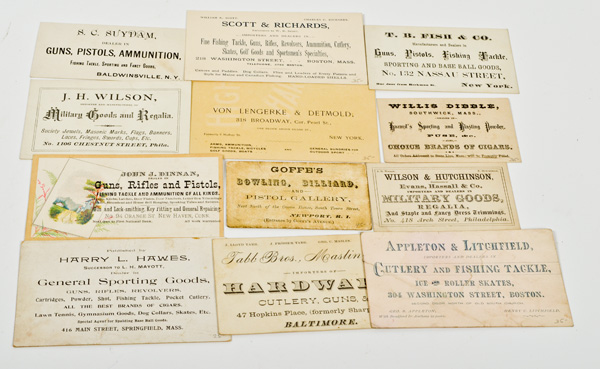 S. C. SUYDAM,
DEALER IN
GUNS, PISTOLS, AMMUNITION,
FISHING TACKLE, SPORTING AND FANCY GOODS,
BALDWINSVILLE, N. Y.
SCOTT & RICHARDS,
Fine Fishing Tackle, Guns, Rifles, Revolvers, Ammunition, Cutlery,
Skates, Golf Goods and Sportsmen's Specialties,
WASHINGTON STREET, BOSTON, MASS.
T. B. FISH & CO.
Manufacturers and Dealers in
Guns, Pistols, Fishing Tackle,
SPORTING AND BASE BALL GOODS,
No. 132 NASSAU STREET,
New York.
J. H. WILSON,
Military Goods and Regalia.
Society Jewels, Masonic Marks, Flags, Banners,
Laces, Fringes, Swords, Caps, Etc.
No. 1106 CHESTNUT STREET, Phila.
VON LENGERKE & DETMOLD,
318 BROADWAY, Cor. Pearl St.,
NEW YORK.
WILLIS DIBBLE,
SOUTHWICK, MASS.,
DEALER IN
Sporting and Blasting Powder,
FUSE, &c.
CHOICE BRANDS OF CIGARS.
JOHN J. BINNAN,
DEALER IN
Guns, Rifles and Pistols,
FISHING TACKLE AND AMMUNITION OF ALL KINDS.
and Lock smithing, Key Fitting and General Repairing,
GOFFE'S
BOWLING, BILLIARD,
AND
PISTOL GALLERY,
NEWPORT, R. I.
WILSON & HUTCHINSON,
Evans, Hassall & Co.
IMPORTERS AND DEALERS IN
MILITARY GOODS,
REGALIA,
And Staple and Fancy Dress Trimmings,
No. 418 Arch Street, Philadelphia.
HARRY L. HAWES,
SUCCESSOR TO L. H. MAYOTT,
General Sporting Goods,
GUNS, RIFLES, REVOLVERS,
Cartridges, Powder, Shot, Fishing Tackle, Pocket Cutlery.
ALL THE BEST BRANDS OF CIGARS.
Lawn Tennis, Gymnasium Goods, Dog Collars, Skates, Etc.
416 MAIN STREET, SPRINGFIELD, MASS.
Tabb Bros., Maslin
IMPORTERS OF
HARDWAR
CUTLERY, GUNS, &
47 Hopkins Place, (formerly Sharp
BALTIMORE.
APPLETON & LITCHFIELD,
IMPORTERS AND DEALERS IN
CUTLERY AND FISHING TACKLE,
ICE AND ROLLER SKATES,
304 WASHINGTON STREET, BOSTON.